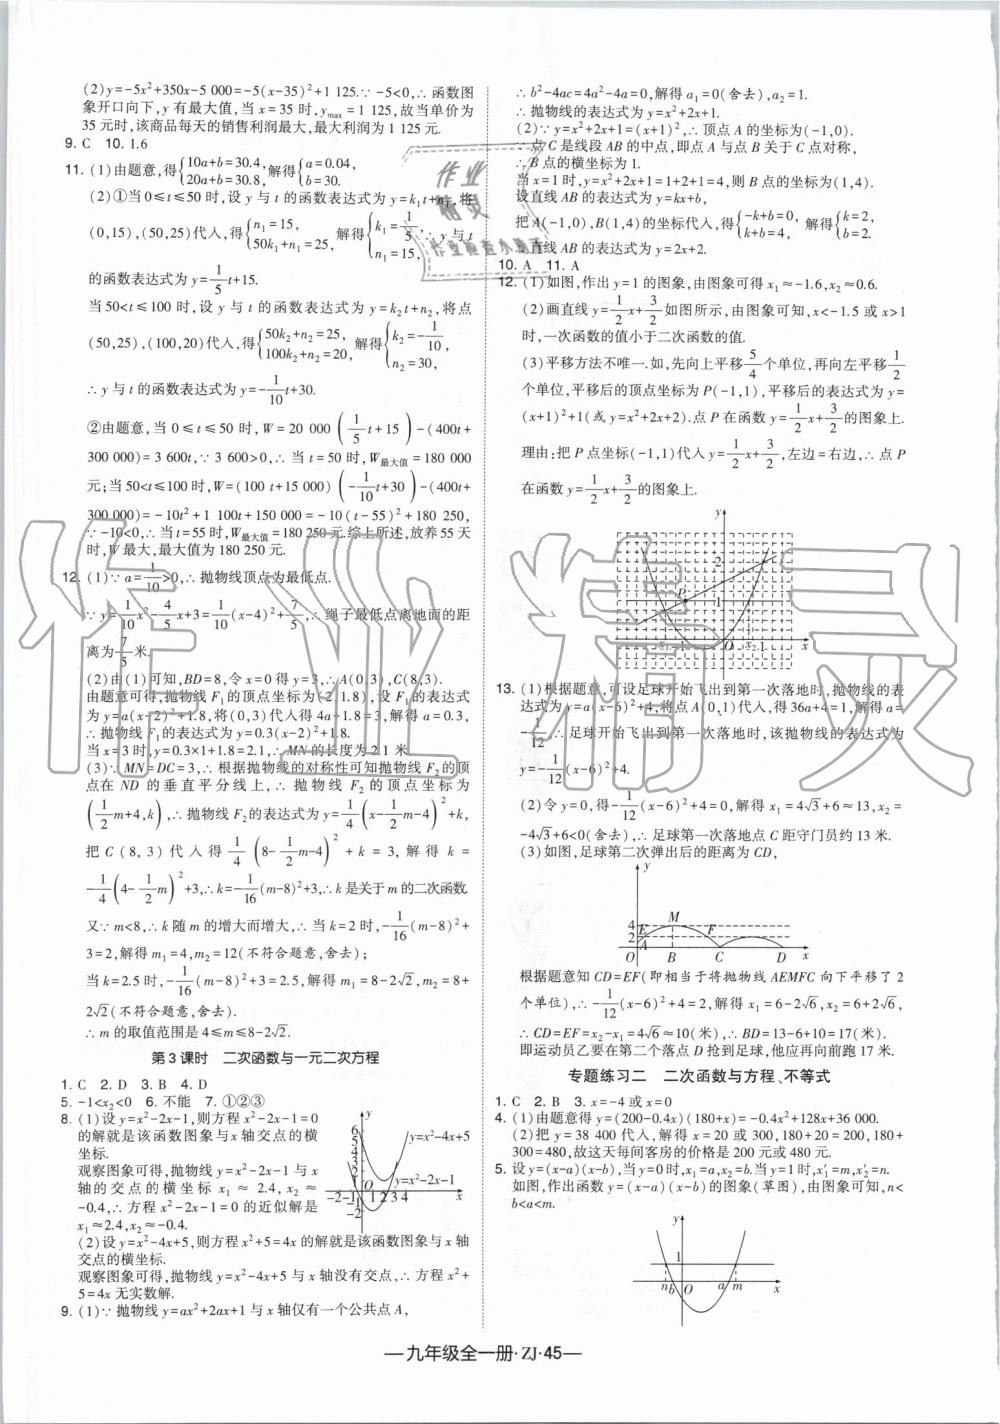 (2)y=-5x²+350x-5 000=-5(x-35)²+1 125.∵-5<0,∴函数图
象开口向下,y有最大值,当x=35时,y_max=1 125,故当单价为
35元时,该商品每天的销售利润最大,最大利润为1 125元.
9. C 10. 1.6
11. (1)由题意,得{10a+b=30.4, 20a+b=30.8, 解得{a=0.04, b=30.
(2)①当0≤t≤50时,设y与t的函数表达式为y=k₁t+n₁,将
(0,15),(50,25)代入,得{n₁=15, 50k₁+n₁=25, 解得{k₁=1/5, n₁=15, ∴y与t
的函数表达式为y=1/5t+15.
当50<t≤100时,设y与t的函数表达式为y=k₂t+n₂,将点
(50,25),(100,20)代入,得{50k₂+n₂=25, 100k₂+n₂=20, 解得{k₂=-1/10, n₂=30,
∴y与t的函数表达式为y=-1/10t+30.
②由题意,当0≤t≤50时,W=20 000(1/5t+15)-(400t+
300 000)=3 600t,∵3 600>0,∴当t=50时,W最大值=180 000
元;当50<t≤100时,W=(100t+15 000)(-1/10t+30)-(400t+
300 000)=-10t²+1 100t+150 000=-10(t-55)²+180 250,
∵-10<0,∴当t=55时,W最大值=180 250元.综上所述,放养55天
时,W最大,最大值为180 250元.
12. (1)∵a=1/10>0,∴抛物线顶点为最低点.
∵y=1/10x²-4/5x+3=1/10(x-4)²+7/5,∴绳子最低点离地面的距
离为7/5米.
(2)由(1)可知,BD=8,令x=0得y=3,∴A(0,3),C(8,3).
由题意可得,抛物线F₁的顶点坐标为(2,1.8),设F₁的表达式
为y=a(x-2)²+1.8,将(0,3)代入得4a+1.8=3,解得a=0.3,
∴抛物线F₁的表达式为y=0.3(x-2)²+1.8.
当x=3时,y=0.3×1+1.8=2.1,∴MN的长度为2.1米.
(3)∵MN=DC=3,∴根据抛物线的对称性可知抛物线F₂的顶
点在ND的垂直平分线上,∴抛物线F₂的顶点坐标为
(1/2m+4,k),∴抛物线F₂的表达式为y=1/4(x-1/2m-4)²+k,
把C(8,3)代入得1/4(8-1/2m-4)²+k=3,解得k=
-1/4(4-1/2m)²+3,∴k=-1/16(m-8)²+3,∴k是关于m的二次函数.
又∵m<8,∴k随m的增大而增大,∴当k=2时,-1/16(m-8)²+
3=2,解得m₁=4,m₂=12(不符合题意,舍去);
当k=2.5时,-1/16(m-8)²+3=2.5,解得m₁=8-2√2,m₂=8+
2√2(不符合题意,舍去).
∴m的取值范围是4≤m≤8-2√2.
第3课时 二次函数与一元二次方程
1. C 2. D 3. B 4. D
5. -1<x₂<0 6. 不能 7. ①②③
8. (1)设y=x²-2x-1,则方程x²-2x-1=0
的解就是该函数图象与x轴交点的横
坐标.
观察图象可得,抛物线y=x²-2x-1与x
轴的交点的横坐标x₁≈2.4,x₂≈
-0.4,∴方程x²-2x-1=0的近似解是
x₁≈2.4,x₂≈-0.4.
y
6
5
4
3
2
1
y=x²-4x+5
y=x²-2x-1
-2-1 O 1 2 3 4 x
-1
-2
(2)设y=x²-4x+5,则方程x²+5=4x的解就是该函数图象与x轴
交点的横坐标.
观察图象可得,抛物线y=x²-4x+5与x轴没有交点,∴方程x²+
5=4x无实数解.
9. (1)∵抛物线y=ax²+2ax+1与x轴仅有一个公共点A,
∴b²-4ac=4a²-4a=0,解得a₁=0(舍去),a₂=1.
∴抛物线的表达式为y=x²+2x+1.
(2)∵y=x²+2x+1=(x+1)²,∴顶点A的坐标为(-1,0).
∵点C是线段AB的中点,即点A与点B关于C点对称,
∴B点的横坐标为1.
当x=1时,y=x²+2x+1=1+2+1=4,则B点的坐标为(1,4).
设直线AB的表达式为y=kx+b,
把A(-1,0),B(1,4)的坐标代入,得{-k+b=0, k+b=4, 解得{k=2, b=2.
∴直线AB的表达式为y=2x+2.
10. A 11. A
12. (1)如图,作出y=1的图象,由图象可得x₁≈-1.6,x₂≈0.6.
(2)画直线y=1/2x+3/2如图所示,由图象可知,x<-1.5或x>1
时,一次函数的值小于二次函数的值.
(3)平移方法不唯一.如,先向上平移5/4个单位,再向左平移1/2
个单位,平移后的顶点坐标为P(-1,1),平移后的表达式为y=
(x+1)²+1(或y=x²+2x+2).点P在函数y=1/2x+3/2的图象上.
理由:把P点坐标(-1,1)代入y=1/2x+3/2,左边=右边,∴点P
在函数y=1/2x+3/2的图象上.
y
2
P
1
x₁ -1 O x₂ 1 x
13. (1)根据题意,可设足球开始飞出到第一次落地时,抛物线的表
达式为y=a(x-6)²+4,将点A(0,1)代入,得36a+4=1,解得a=
-1/12,∴足球开始飞出到第一次落地时,该抛物线的表达式为
y=-1/12(x-6)²+4.
(2)令y=0,得-1/12(x-6)²+4=0,解得x₁=4√3+6≈13,x₂=
-4√3+6<0(舍去),∴足球第一次落地点C距守门员约13米.
(3)如图,足球第二次弹出后的距离为CD,
y
4 M
2 E F
A
O B C D x
根据题意知CD=EF(即相当于将抛物线AEMFC向下平移了2
个单位),∴-1/12(x-6)²+4=2,解得x₁=6-2√6,x₂=6+2√6,
∴CD=EF=x₂-x₁=4√6≈10(米),∴BD=13-6+10=17(米).
即运动员乙要在第二个落点D抢到足球,他应再向前跑17米.
专题练习二 二次函数与方程、不等式
1. C 2. B 3. x=-4或x=0
4. (1)由题意得y=(200-0.4x)(180+x)=-0.4x²+128x+36 000.
(2)把y=38 400代入,解得x=20或x=300,180+20=200,180+
300=480,故这天每间客房的价格是200元或480元.
5. 设y=(x-a)(x-b),当y=0时,x₁=a,x₂=b.当y=1时,x₁′=m,x₂′=n.
如图,作出函数y=(x-a)(x-b)的图象(草图),由图象可知,n<
b<a<m.
y
1
n b a m x
九年级全一册·ZJ·45
作业精灵
作业
精灵
作业检查小帮手